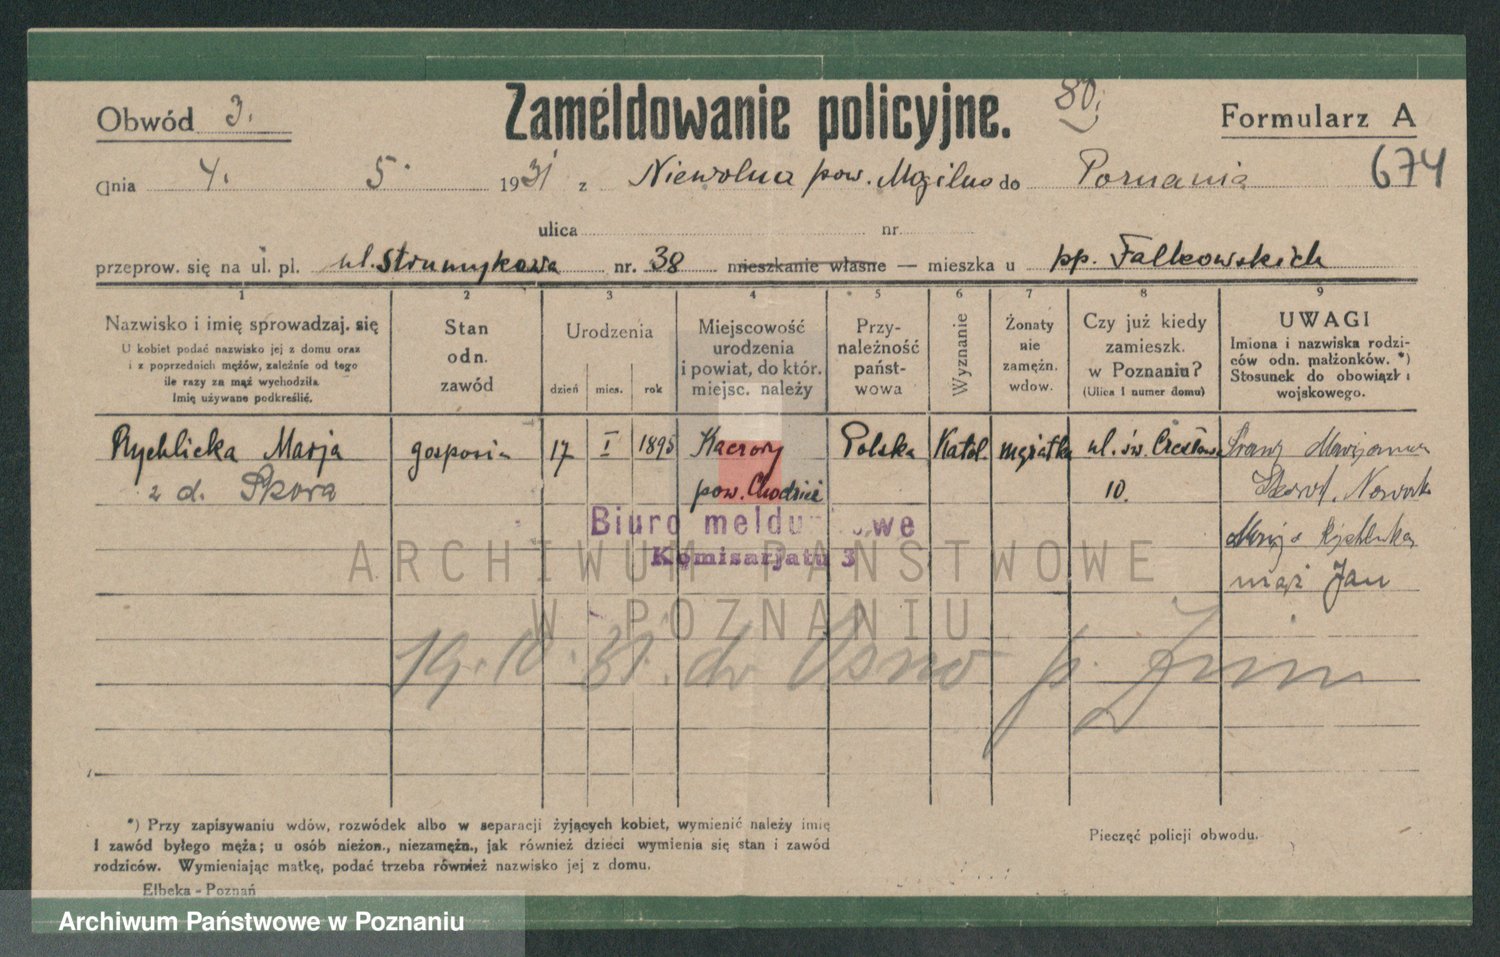 Obwód 3.
Zameldowanie policyjne.
80.
Formularz A
dnia 4. 5. 1931 z Niewolna pow. Mogilno do Poznania 674
ulica nr.
przeprow. się na ul. pl. ul. Strumykowa nr. 38 mieszkanie własne — mieszka u pp. Falkowskich
1 2 3 4 5 6 7 8 9
Nazwisko i imię sprowadzaj. się
U kobiet podać nazwisko jej z domu oraz
i z poprzednich mężów, zależnie od tego
ile razy za mąż wychodziła.
Imię używane podkreślić.
Stan
odn.
zawód
Urodzenia
dzień mies. rok
Miejscowość
urodzenia
i powiat, do któr.
miejsc. należy
Przy-
należność
państ-
wowa
Wyznanie
Żonaty
nie
zamężn.
wdow.
Czy już kiedy
zamieszk.
w Poznaniu?
(Ulica i numer domu)
UWAGI
Imiona i nazwiska rodzi-
ców odn. małżonków. *)
Stosunek do obowiązk.
wojskowego.
Rychlicka Marja gosposia 17 I 1895 Kaczory Polska Katol. mężatka ul. św. Czesława
z d. Skora pow. Chodzież 10. Nowak
Biuro meldunkowe
Komisarjatu 3
Rychlicka
mąż Jan
ARCHIWUM PAŃSTWOWE
W POZNANIU
19. 10. 31. do Osno p.
*) Przy zapisywaniu wdów, rozwódek albo w separacji żyjących kobiet, wymienić należy imię
i zawód byłego męża; u osób nieżon., niezamężn., jak również dzieci wymienia się stan i zawód
rodziców. Wymieniając matkę, podać trzeba również nazwisko jej z domu.
Pieczęć policji obwodu.
Elbeka - Poznań
Archiwum Państwowe w Poznaniu